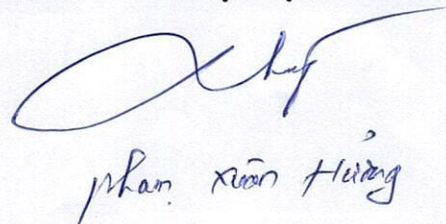 Phạm Xuân Hưởng